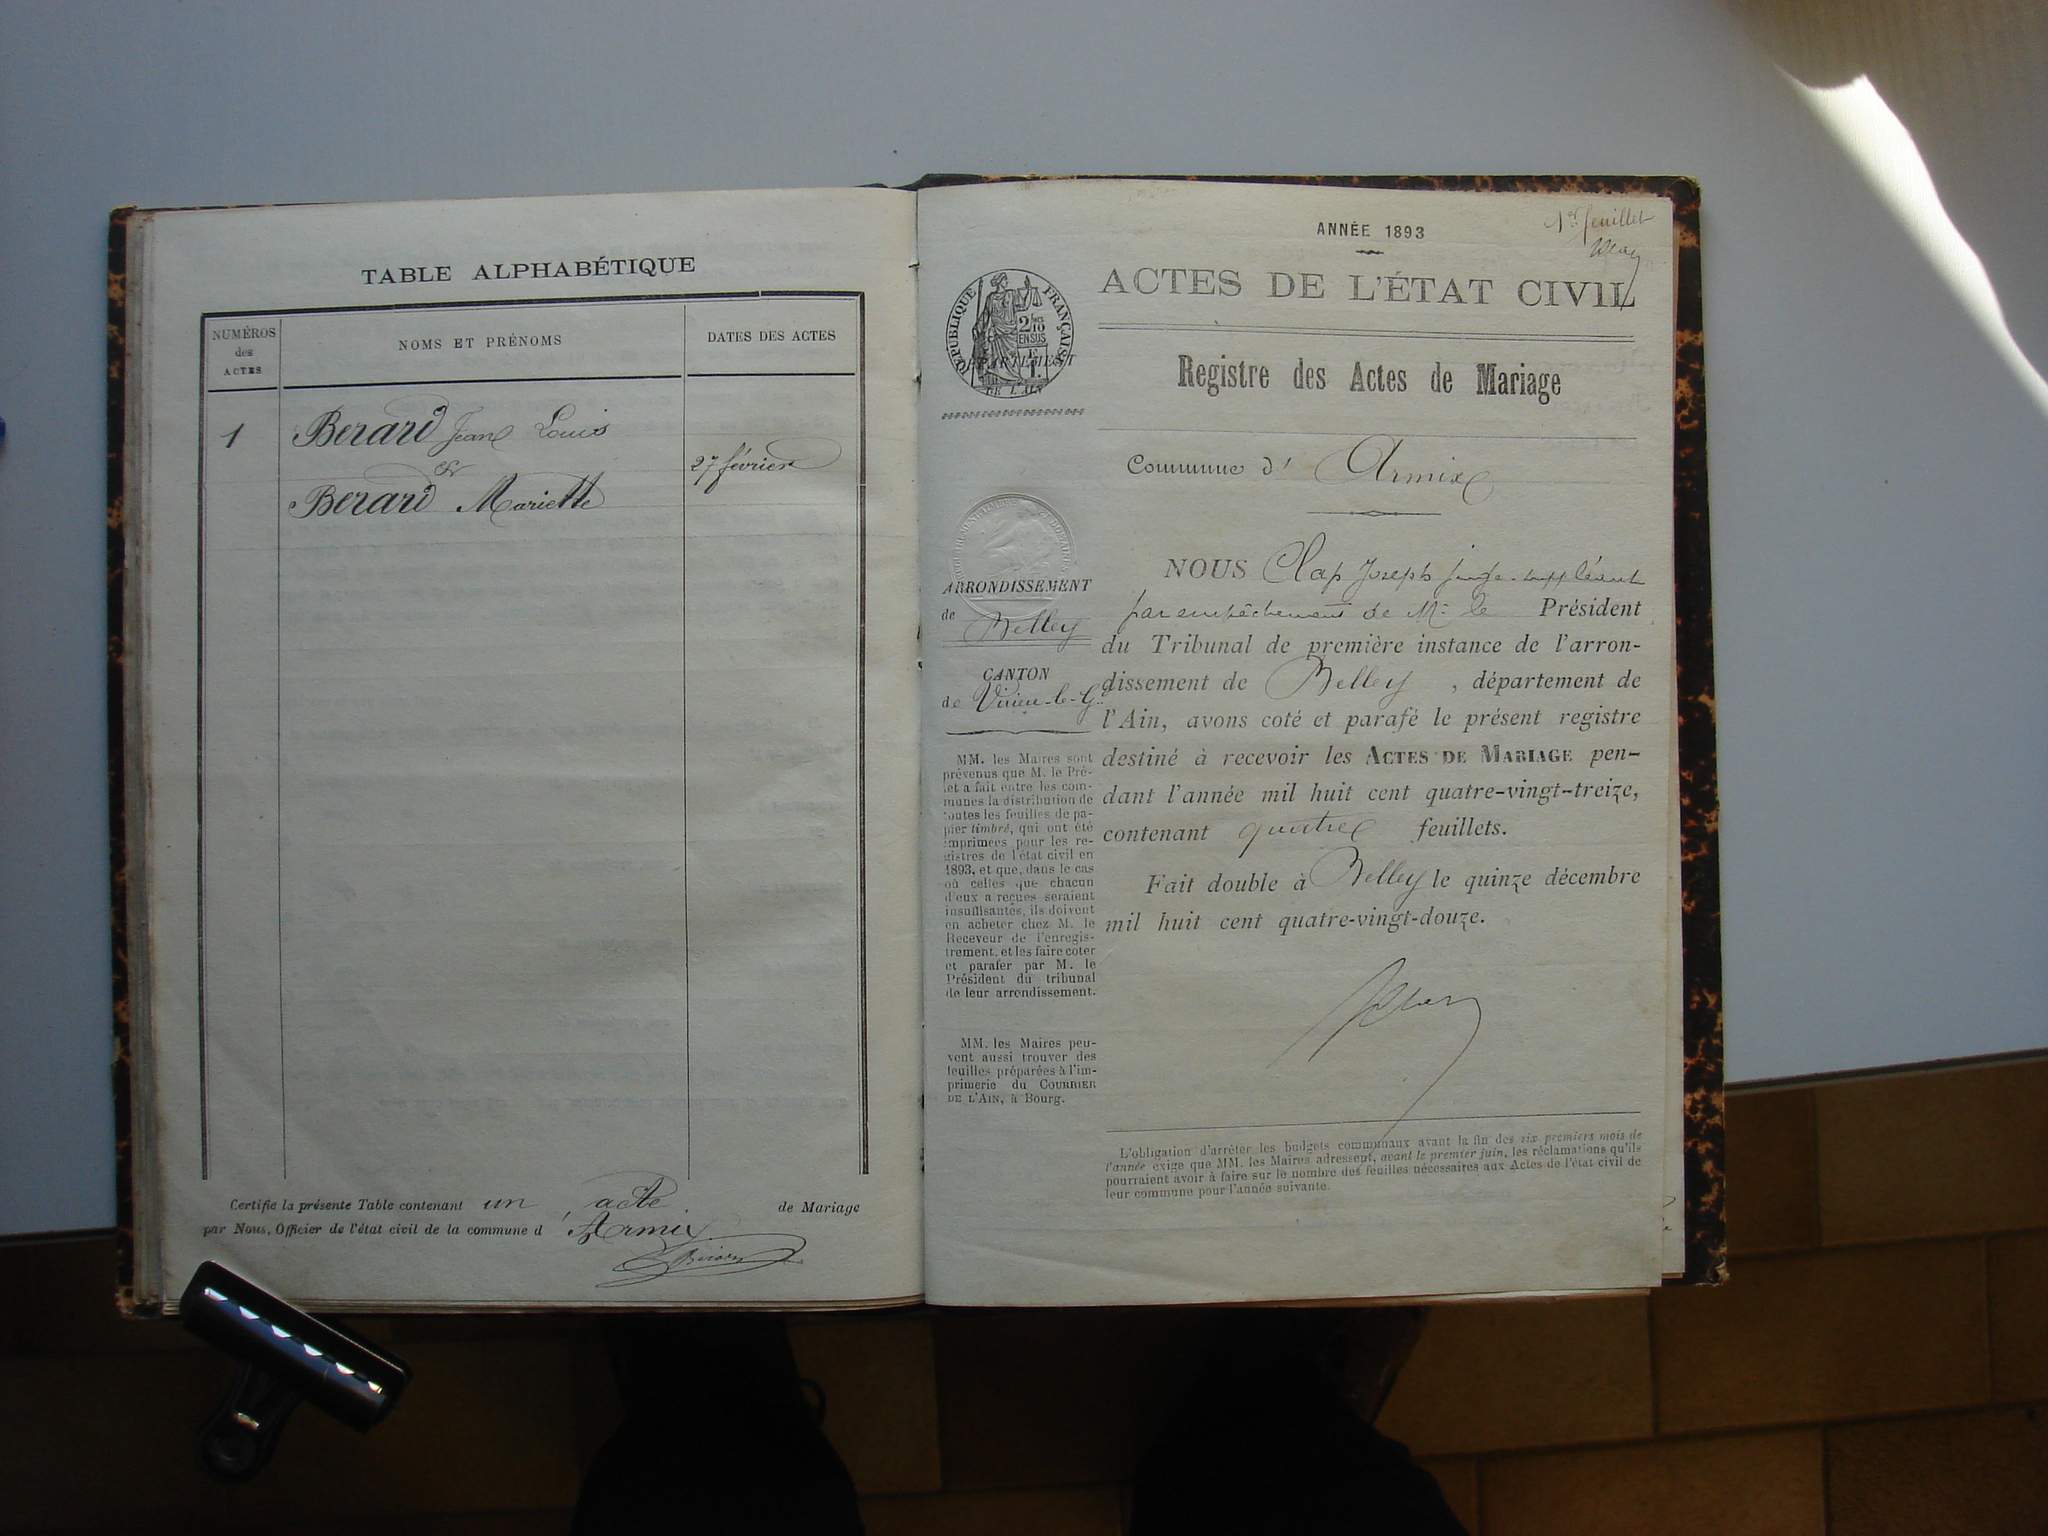 TABLE ALPHABÉTIQUE
NUMÉROS
des
ACTES
NOMS ET PRÉNOMS
DATES DES ACTES
1
Berard Jean Louis
et
27 février
Berard Mariette
Certifie la présente Table contenant un acte de Mariage
par Nous, Officier de l'état civil de la commune d'Armix
1er feuillet
ANNÉE 1893
ACTES DE L'ÉTAT CIVIL
RÉPUBLIQUE FRANÇAISE
2/10
EN SUS
DÉPARTEMENT
DE L'AIN
Registre des Actes de Mariage
Commune d' Armix
ARRONDISSEMENT
de Belley
CANTON
de Virieu-le-Gd
MM. les Maires sont
prévenus que M. le Pré-
fet a fait entre les com-
munes la distribution de
toutes les feuilles de pa-
pier timbré, qui ont été
imprimées pour les re-
gistres de l'état civil en
1893, et que, dans le cas
où celles que chacun
d'eux a reçues seraient
insuffisantes, ils doivent
en acheter chez M. le
Receveur de l'enregis-
trement, et les faire coter
et parafer par M. le
Président du tribunal
de leur arrondissement.
MM. les Maires peu-
vent aussi trouver des
feuilles préparées à l'im-
primerie du COURRIER
DE L'AIN, à Bourg.
NOUS Clap Joseph juge-suppléant
par empêchement de Mr le Président
du Tribunal de première instance de l'arron-
dissement de Belley, département de
l'Ain, avons coté et parafé le présent registre
destiné à recevoir les ACTES DE MARIAGE pen-
dant l'année mil huit cent quatre-vingt-treize,
contenant quatre feuillets.
Fait double à Belley le quinze décembre
mil huit cent quatre-vingt-douze.
L'obligation d'arrêter les budgets communaux avant la fin des six premiers mois de
l'année exige que MM. les Maires adressent, avant le premier juin, les réclamations qu'ils
pourraient avoir à faire sur le nombre des feuilles nécessaires aux Actes de l'état civil de
leur commune pour l'année suivante.